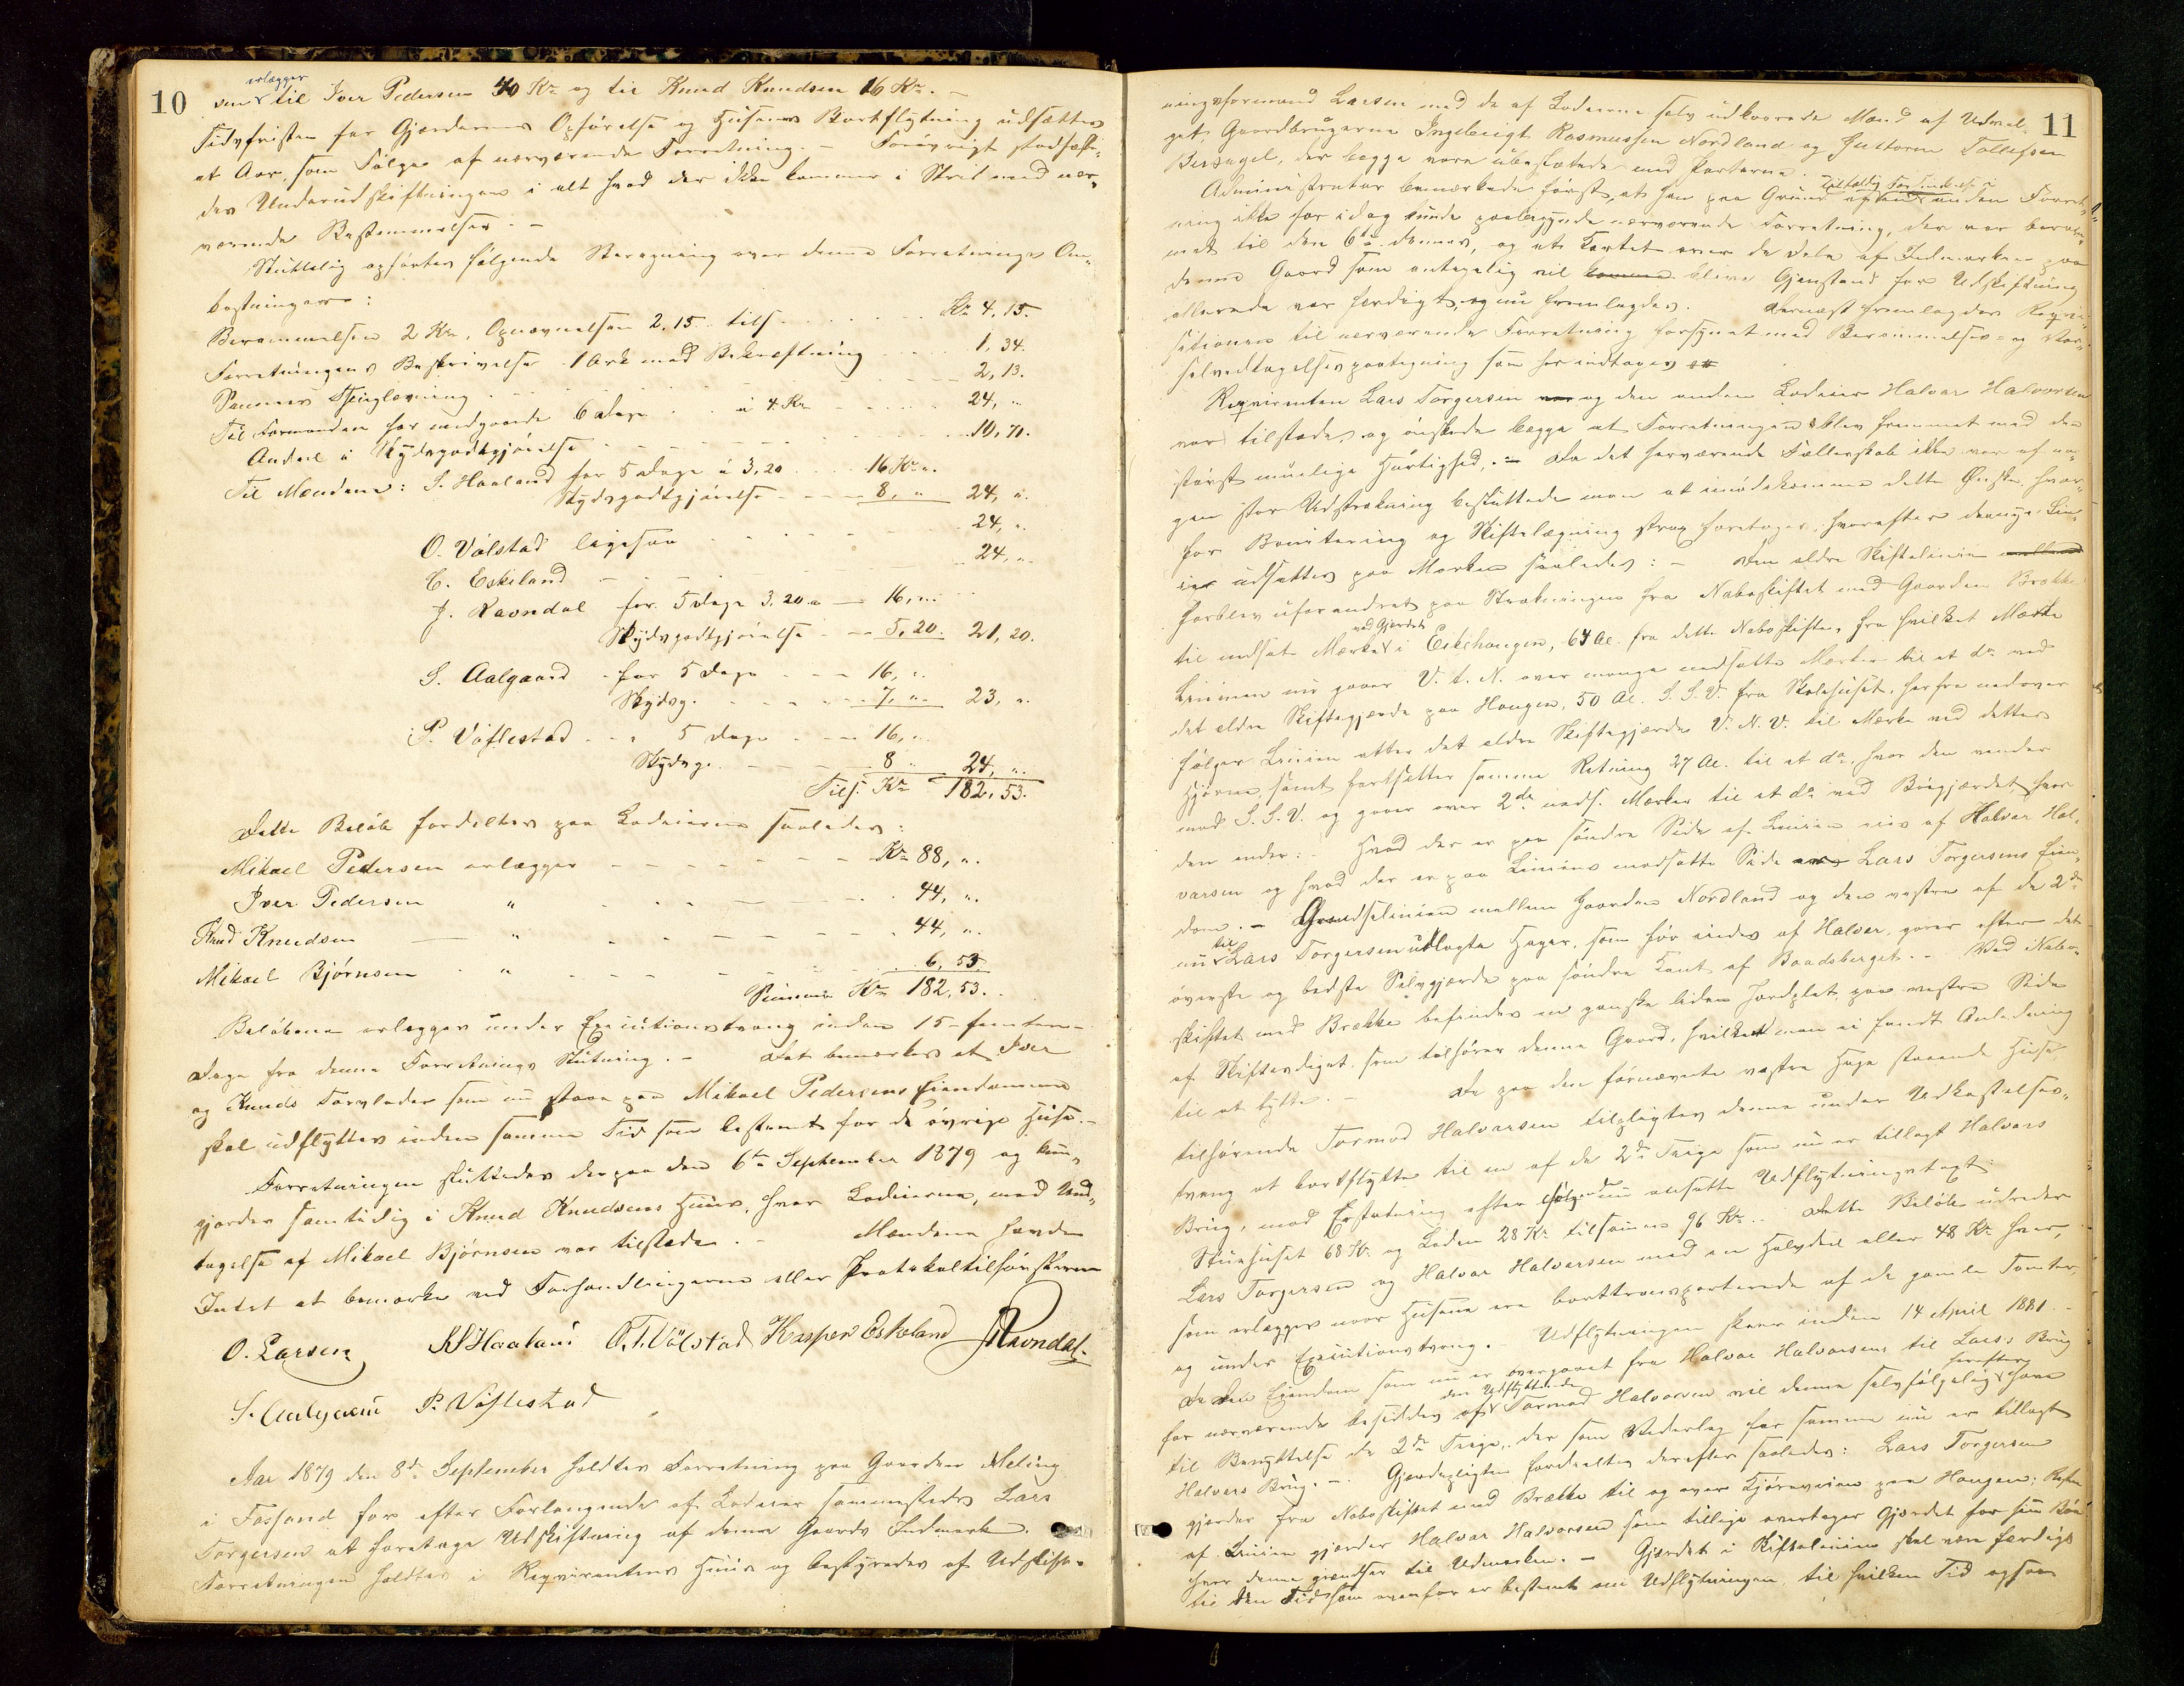 10
erlægger
den til Iver Pedersen 40 Kr og til Knud Knudsen 16 Kr. –
Tidsfristen for Gjærdernes Opførelse og Husenes Bortflytning udsættes
et Aar, som Følge af nærværende Forretning. – Forøvrigt stadfæste
des Underudskiftningen i alt hvad der ikke kommer i Strid med nær-
værende Bestemmelser. –
Sluttelig opførtes følgende Beregning over denne Forretnings Om-
kostninger:
Berammelsen 2 Kr, Opnævnelsen 2,15 tils. Kr 4,15.
Forretningens Beskrivelse 1 Ark med Bekræftning 1,34.
Sammes Thinglæsning 2,13.
Til Formanden for medgaaede 6 Dage à 4 Kr 24, "
Andeel i Skydsgodtgjørelse 10,71.
Til Mændene: S. Haaland for 5 Dage à 3,20 16 Kr ".
Skydsgodtgjørelse 8, " 24, ".
O. Vølstad ligesaa 24, ".
C. Eskeland 24, ".
J. Ravndal for 5 Dage 3,20 a 16, ".
Skydsgodtgjørelse 5,20. 21,20.
S. Aalgaard for 5 Dage 16, ".
Skydsg. 7, ". 23, ".
P. Vaflestad " 5 Dage 16, ".
Skydsg. 8 " 24, ".
Tils. Kr 182,53.
Dette Beløb fordeltes paa Lodeierne saaledes:
Mikael Pedersen erlægger Kr 88, ".
Iver Pedersen " 44, ".
Knud Knudsen " 44, ".
Mikael Bjørnsen " 6,53.
Summa Kr 182,53.
Beløbene erlægges under Executionstvang inden 15 – femten –
Dage fra denne Forretnings Slutning. – Det bemærkes at Iver
og Knuds Torvlader som nu staae paa Mikael Pedersens Eiendomme
skal udflyttes inden samme Tid som bestemt for de øvrige Huse. –
Forretningen sluttedes derpaa den 6te September 1879 og kund-
gjordes samtidig i Knud Knudsens Huus, hvor Lodeierne, med Und-
tagelse af Mikael Bjørnsen var tilstede. – Mændene havde
Intet at bemærke ved Forhandlingerne eller Protokoltilførslerne
O. Larsen S Haaland O. T. Vølstad Kasper Eskeland J Ravndal.
S. Aalgaard P. Vaflestad
Aar 1879 den 8de September holdtes Forretning paa Gaarden Meling
i Fossand for efter Forlangende af Lodeier sammesteds Lars
Torgersen at foretage Udskiftning af denne Gaards Indmark.
Forretningen holdtes i Reqvirentens Huus og bestyredes af Udskift-
11
ningsformand Larsen med de af Lodeierne selv udkaarede Mænd af Udval-
get, Gaardbrugerne Ingebrigt Rasmussen Nordland og Guttorm Tollefsen
Bersagel, der begge vare ubeslægtede med Parterne. –
Administrator bemærkede først, at han paa Grund af tilfældig Forhindrelse i en anden Forret-
ning ikke før idag kunde paabegynde nærværende Forretning, der var beram-
met til den 6te dennes, og at Kartet over de Dele af Indmarken paa
denne Gaard som antagelig vil komme blive Gjenstand for Udskiftning
allerede var færdigt, og nu fremlagdes. Dernæst fremlagdes Reqvi-
sitionen til nærværende Forretning forsynet med Berammelses- og Var-
selvedtagelsespaategning som her indtages
Reqvirenten Lars Torgersen var og den anden Lodeier Halvar Halvorsen
var tilstede, og ønskede begge at Forretningen blev fremmet med den
størst muelige Hurtighed. – Da det herværende Fællesskab ikke var af no-
gen stor Udstrækning besluttede man at imødekomme dette Ønske, hvor-
for Bonitering og Skiftelægning strax foretoges, hvorefter de nye Lin-
ier udsattes paa Marken saaledes: – Den ældre Skiftelinie mellem
forblev uforandret paa Strækningen fra Naboskiftet med Gaarden Brække
til nedsat Mærke ved Gjærdet i Eskehaugen, 64 Al. fra dette Naboskifte, fra hvilket Mærke
Linien nu gaaer V. t. N. over mange nedsatte Mærker til et do ved
det ældre Skiftegjærde paa Haugen, 50 Al. S. S. V. fra Skolehuset, herfra nedover
følger Linien etter det ældre Skiftegjærde V. N. V. til Mærke ved dettes
Hjørne, samt fortsætter samme Retning 27 Al. til et do, hvor den vender
mod S. S. V. og gaaer over 2de neds. Mærker til et do ved Bøegjærdet hvor
den ender. – Hvad der er paa søndre Side af Linien eies af Halvar Hal-
varsen og hvad der er paa Liniens modsatte Side er Lars Torgersens Eien-
dom. – Grændselinien mellem Gaarden Nordland og den vestre af de 2de
nu til Lars Torgersen udlagte Hager, som før eiedes af Halvar, gaaer efter det
øverste og bedste Selvgjærde paa søndre Kant af Baadsberget. – Ved Nabo-
skiftet med Brække befindes en ganske liden Jordplet, paa vestre Side
af Skiftesdiget som tilhører denne Gaard, hvilket man ei fandt Anledning
til at bytte. – De paa den førnævnte vestre Hage staaende Huse,
tilhørende Tormod Halvarsen tilpligtes denne under Udkastelses-
tvang at bortflytte til en af de 2de Teige som nu er tillagt Halvars
Brug, mod Erstatning efter følgende nu ansatte Udflytningstaxt:
Stuehuset 68 Kr og Loden 28 Kr tilsammen 96 Kr. – Dette Beløb udredes
Lars Torgersen og Halvar Halvarsen med en Halvdeel eller 48 Kr hver,
som erlægges naar Husene ere borttransporterede af de gamle Tomter,
og under Executionstvang. Udflytningen skeer inden 14 April 1881. –
Da den Eiendom som nu er overgaaet fra Halvar Halvarsens til Lars's Brug
for nærværende besiddes af den Udflyttende Tormod Halvarsen vil denne selvfølgelig herefter have
til Benyttelse de 2de Teige, der som Vederlag for samme nu er tillagt
Halvars Brug. – Gjærdepligten fordeeltes derefter saaledes: Lars Torgersen
gjærder fra Naboskiftet med Brække til og over Kjøreveien paa Haugen; Resten
af Linien gjærder Halvar Halvarsen som tillige overtager Gjærdet for sin Bøe
hvor denne grændser til Udmarken. – Gjærdet i Skiftelinien skal være færdigt
til den Tid som ovenfor er bestemt om Udflytningen, til hvilken Tid ogsaa